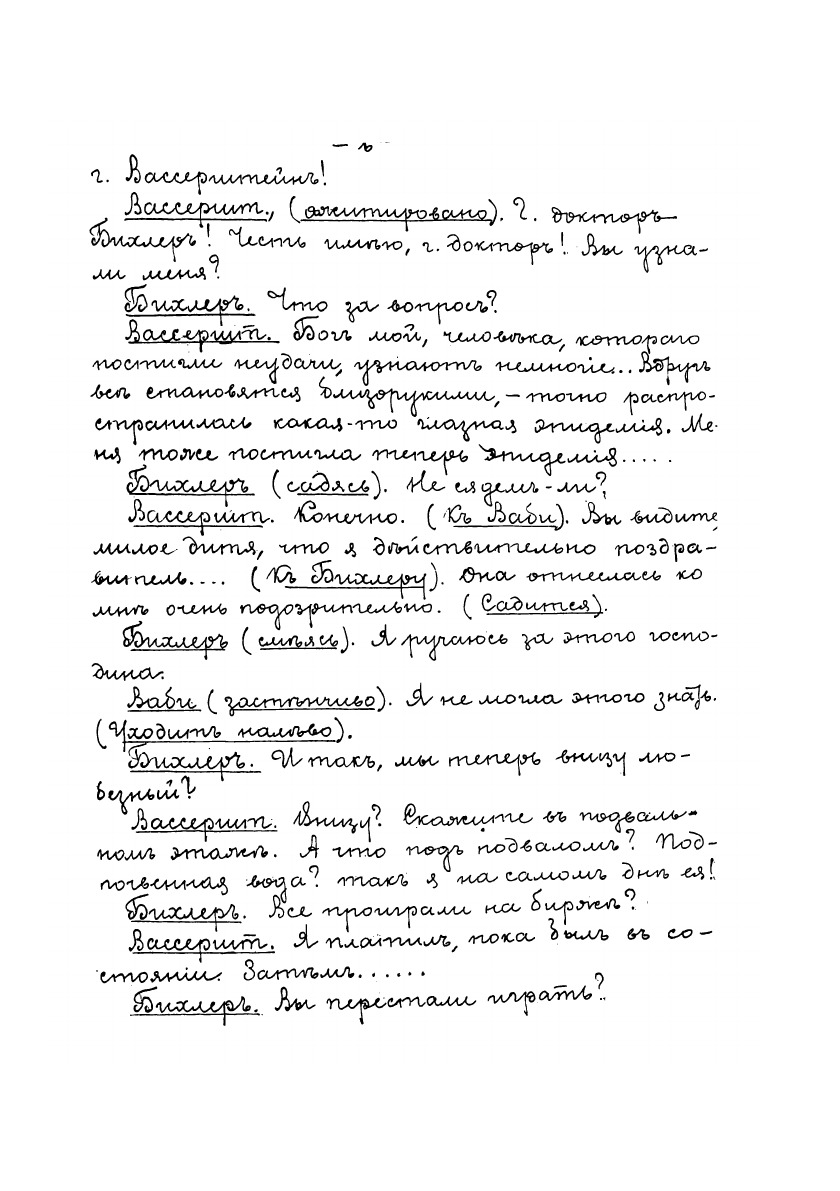 г. Вассерштейнъ!
Вассершт., (ажитировано). Г. докторъ
Бихлеръ! Честь имѣю, г. докторъ! Вы узна-
ли меня?
Бихлеръ. Что за вопросъ?
Вассершт. Богъ мой, человѣка, котораго
постигли неудачи, узнаютъ немногіе... Вдругъ
всѣ становятся близорукими, – точно распро-
странилась какая-то глазная эпидемія. Ме-
ня тоже постигла теперь эпидемія.....
Бихлеръ (садясь). Не сядемъ-ли?
Вассершт. Конечно. (Къ Ваби). Вы видите,
милое дитя, что я дѣйствительно поздра-
витель.... (Къ Бихлеру). Она отнеслась ко
мнѣ очень подозрительно. (Садится).
Бихлеръ (смѣясь). Я ручаюсь за этого госпо-
дина.
Ваби (застѣнчиво). Я не могла этого знать.
(Уходитъ налѣво).
Бихлеръ. И такъ, мы теперь внизу лю-
безный?
Вассершт. Внизу? Скажите въ подваль-
номъ этажѣ. А что подъ подваломъ? Под-
почвенная вода? такъ я на самомъ днѣ ея!
Бихлеръ. Все проиграли на биржѣ?
Вассершт. Я платилъ, пока былъ въ со-
стояніи. Затѣмъ......
Бихлеръ. Вы перестали играть?